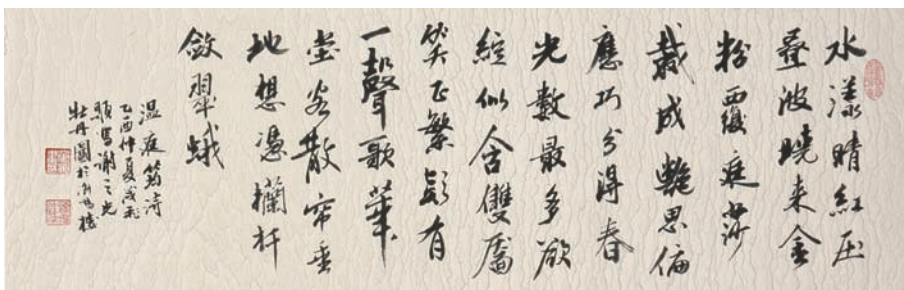 水漾晴紅压
叠波曉来金
粉覆庭莎
裁成艷思偏
應巧分得春
光數最多欲
綻似含雙靨
笑正繁疑有
一聲歌華
堂客散帘垂
地想憑欄杆
斂翠蛾
温庭筠詩
乙酉仲夏
題寫謝之光
牡丹圖於